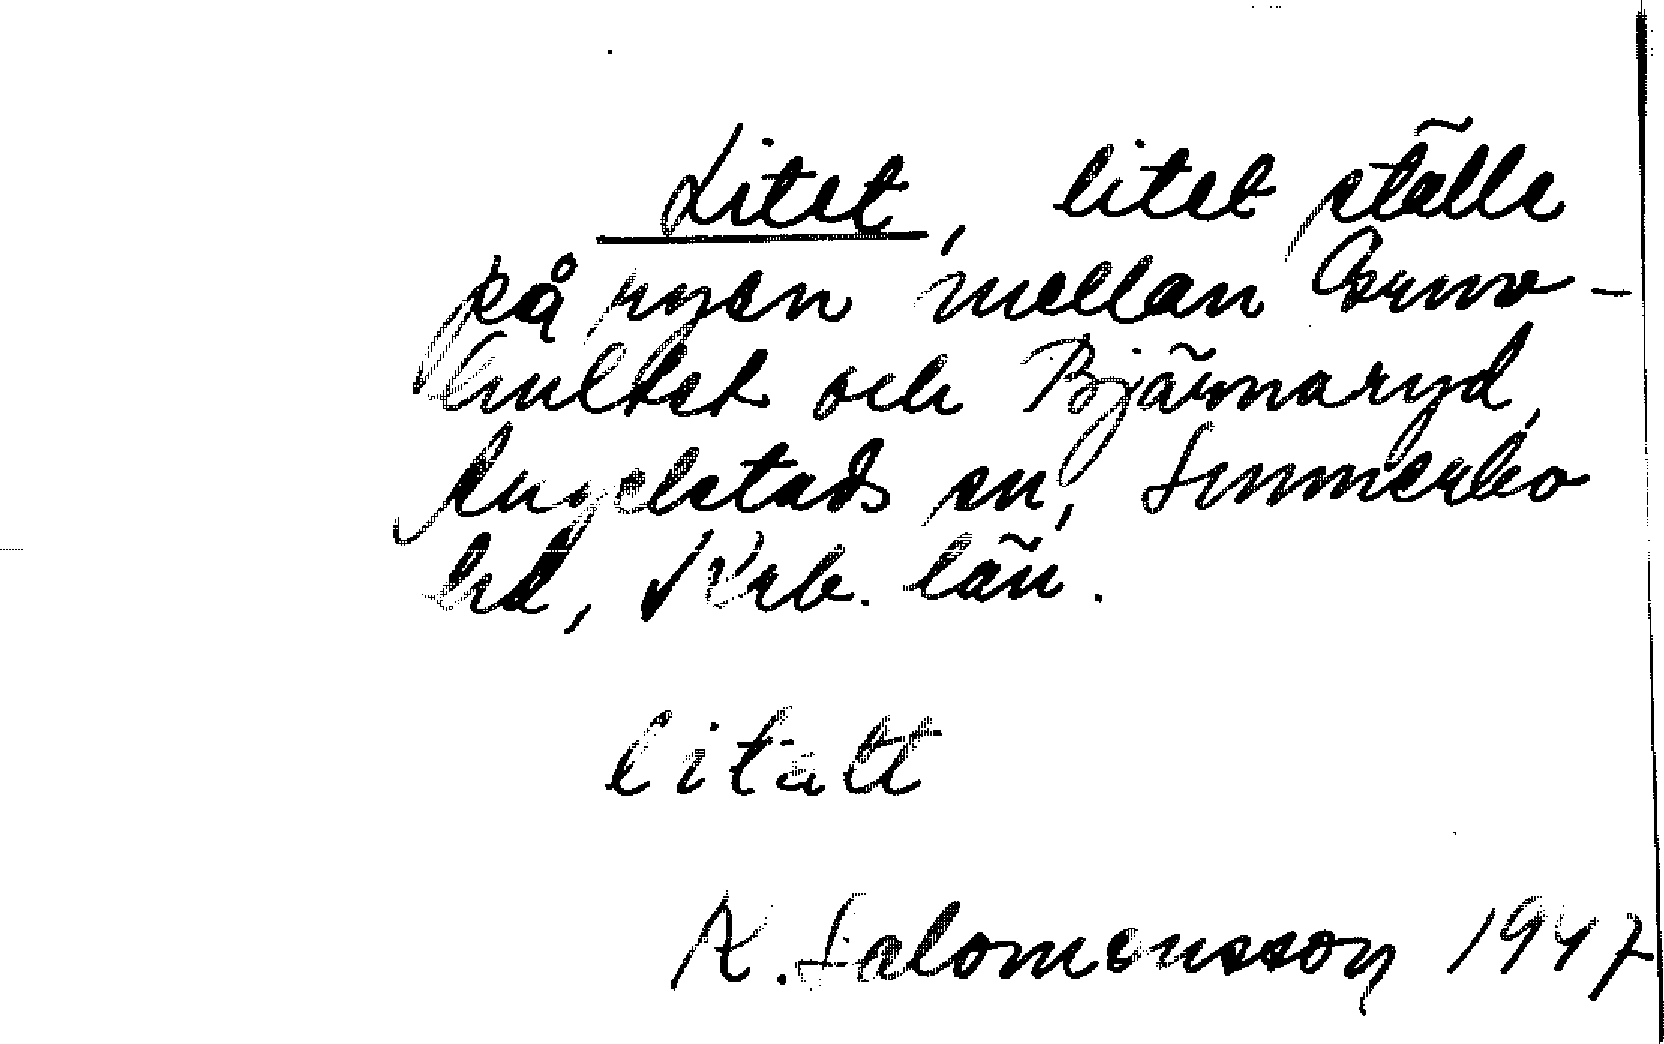 Litet, litet ställe
på ryen mellan Ormo-
hultet och Bjärnaryd,
Angelstads sn, Sunnerbo
hd, Krb. län.
litätt
K. Salomonsson 1947